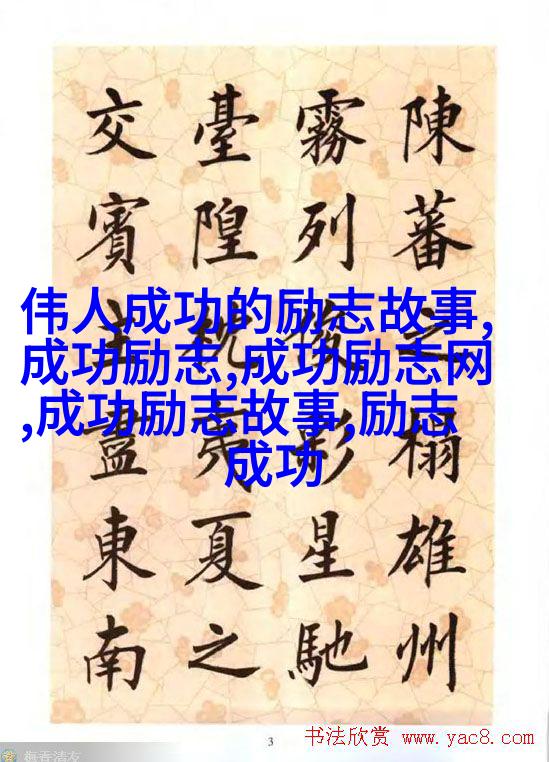 陳蕃之榻雄州
霧列俊星馳
臺隍枕夷夏之
交賓主盡東南
伟人成功的励志故事,
成功励志,成功励志网
,成功励志故事,励志
成功
3
书法欣赏 www.yac8.com